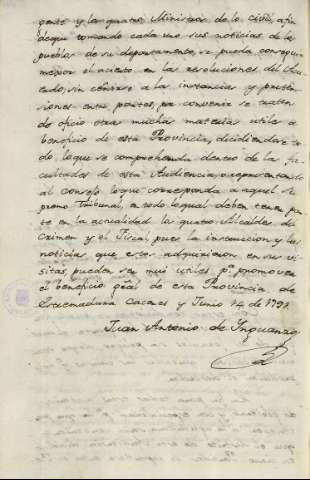 gente y los quatro Ministros de lo civil, a fin
de que tomando cada uno sus noticias de los
pueblos de su departamento, se pueda conseguir
mejor el acierto en las resoluciones del Acu
erdo, sin ceñirse a las instancias y preten
siones entre partes, pr. convenir se traten
de oficio otras muchas materias utiles a
beneficio de esta Provincia, decidiendose to
do lo que se comprehenda dentro de las fa
cultades de esta Audiencia, o representando
al consejo lo que corresponda a aquel su
premo Tribunal, en todo lo qual deben tener par
te en la actualidad los quatro Alcaldes de
Crimen y el Fiscal, pues la instruccion y las
noticias que estos adquirieron en sus vi
sitas, pueden ser mui utiles pa. promover
el beneficio gral de esta Provincia de
Extremadura Caceres y Junio 14 de 1791.
Juan Antonio de Inguanzo